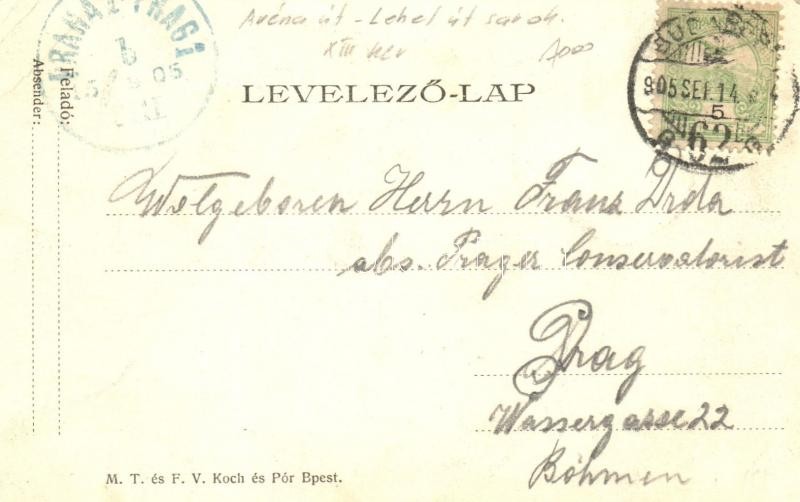 Aréna út - Lehel út sarok.
XIII ker
7000
PRAHA 1 PRAG 1
BUDAPEST
905 SEP. 14
5
62
Feladó:
Absender:
LEVELEZŐ-LAP
Wolgeboren Herrn Franz Drda
abs. Prager Conservatorist
Prag
Wassergasse 22
Böhmen
M. T. és F. V. Koch és Pór Bpest.